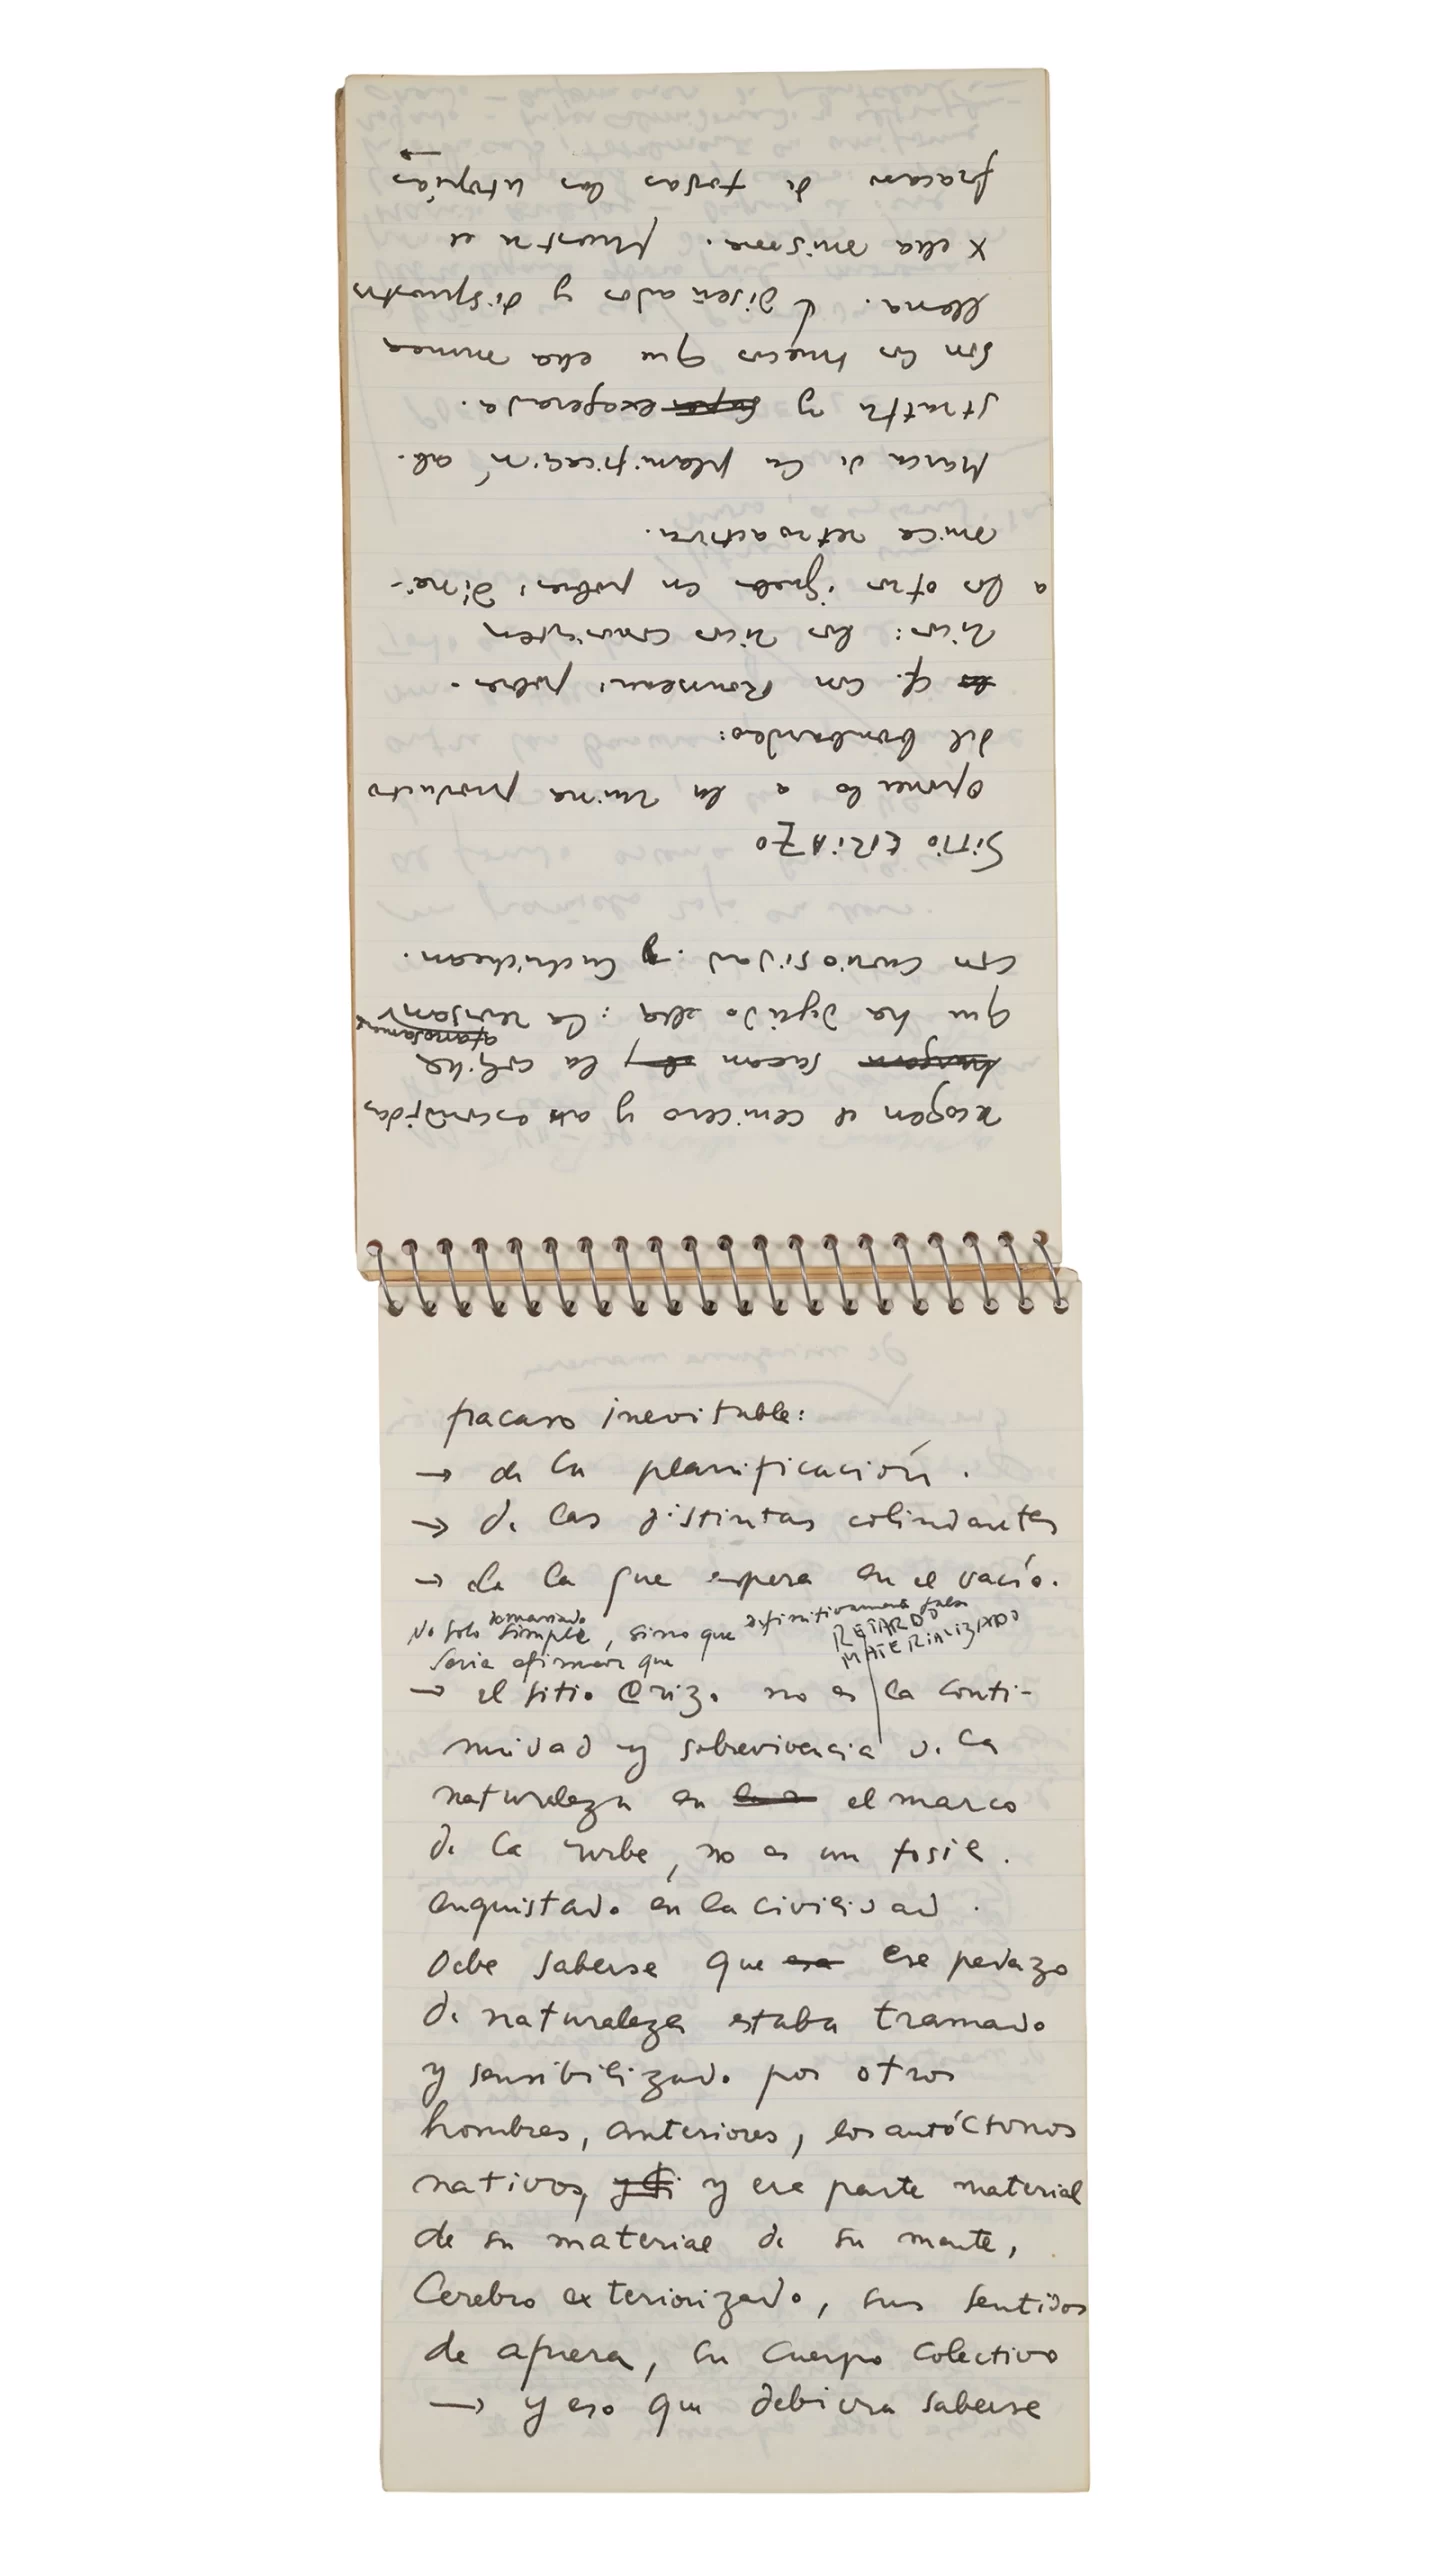 recogen el cenicero y a escondidas
sacan la colilla
afanosamente
que ha dejado ella: la revisan
con curiosidad. y cuchichean.
SITIO ERIAZO
oponerlo a la ruina producto
del bombardeo:
cf. con Rousseau: pobre-
ricos: los ricos convierten
a los otros iguales en pobres: diná-
mica retroactiva.
Marca de la planificación abs-
tracta y exagerada.
son los huecos que ella nunca
llena. Diseñados y dispuestos
x ella misma. Muestra el
fracaso de todas las utopías
→
fracaso inevitable:
→ de la planificación.
→ de las distintas colindantes
→ de la que espera en el vacío.
No solo demasiado simple, sino que definitivamente falso
sería afirmar que
RETARDO
MATERIALIZADO
→ el sitio erizo no es la conti-
nuidad y sobrevivencia de la
naturaleza en el marco
de la urbe, no es un fosil.
enquistado en la civilidad.
Debe saberse que ese pedazo
de naturaleza estaba tramado
y sensibilizado por otros
hombres, anteriores, los autóctonos
nativos, y era parte material
de su material de su mente,
Cerebro exteriorizado, sus sentidos
de afuera, su cuerpo colectivo
→ y eso que debiera saberse